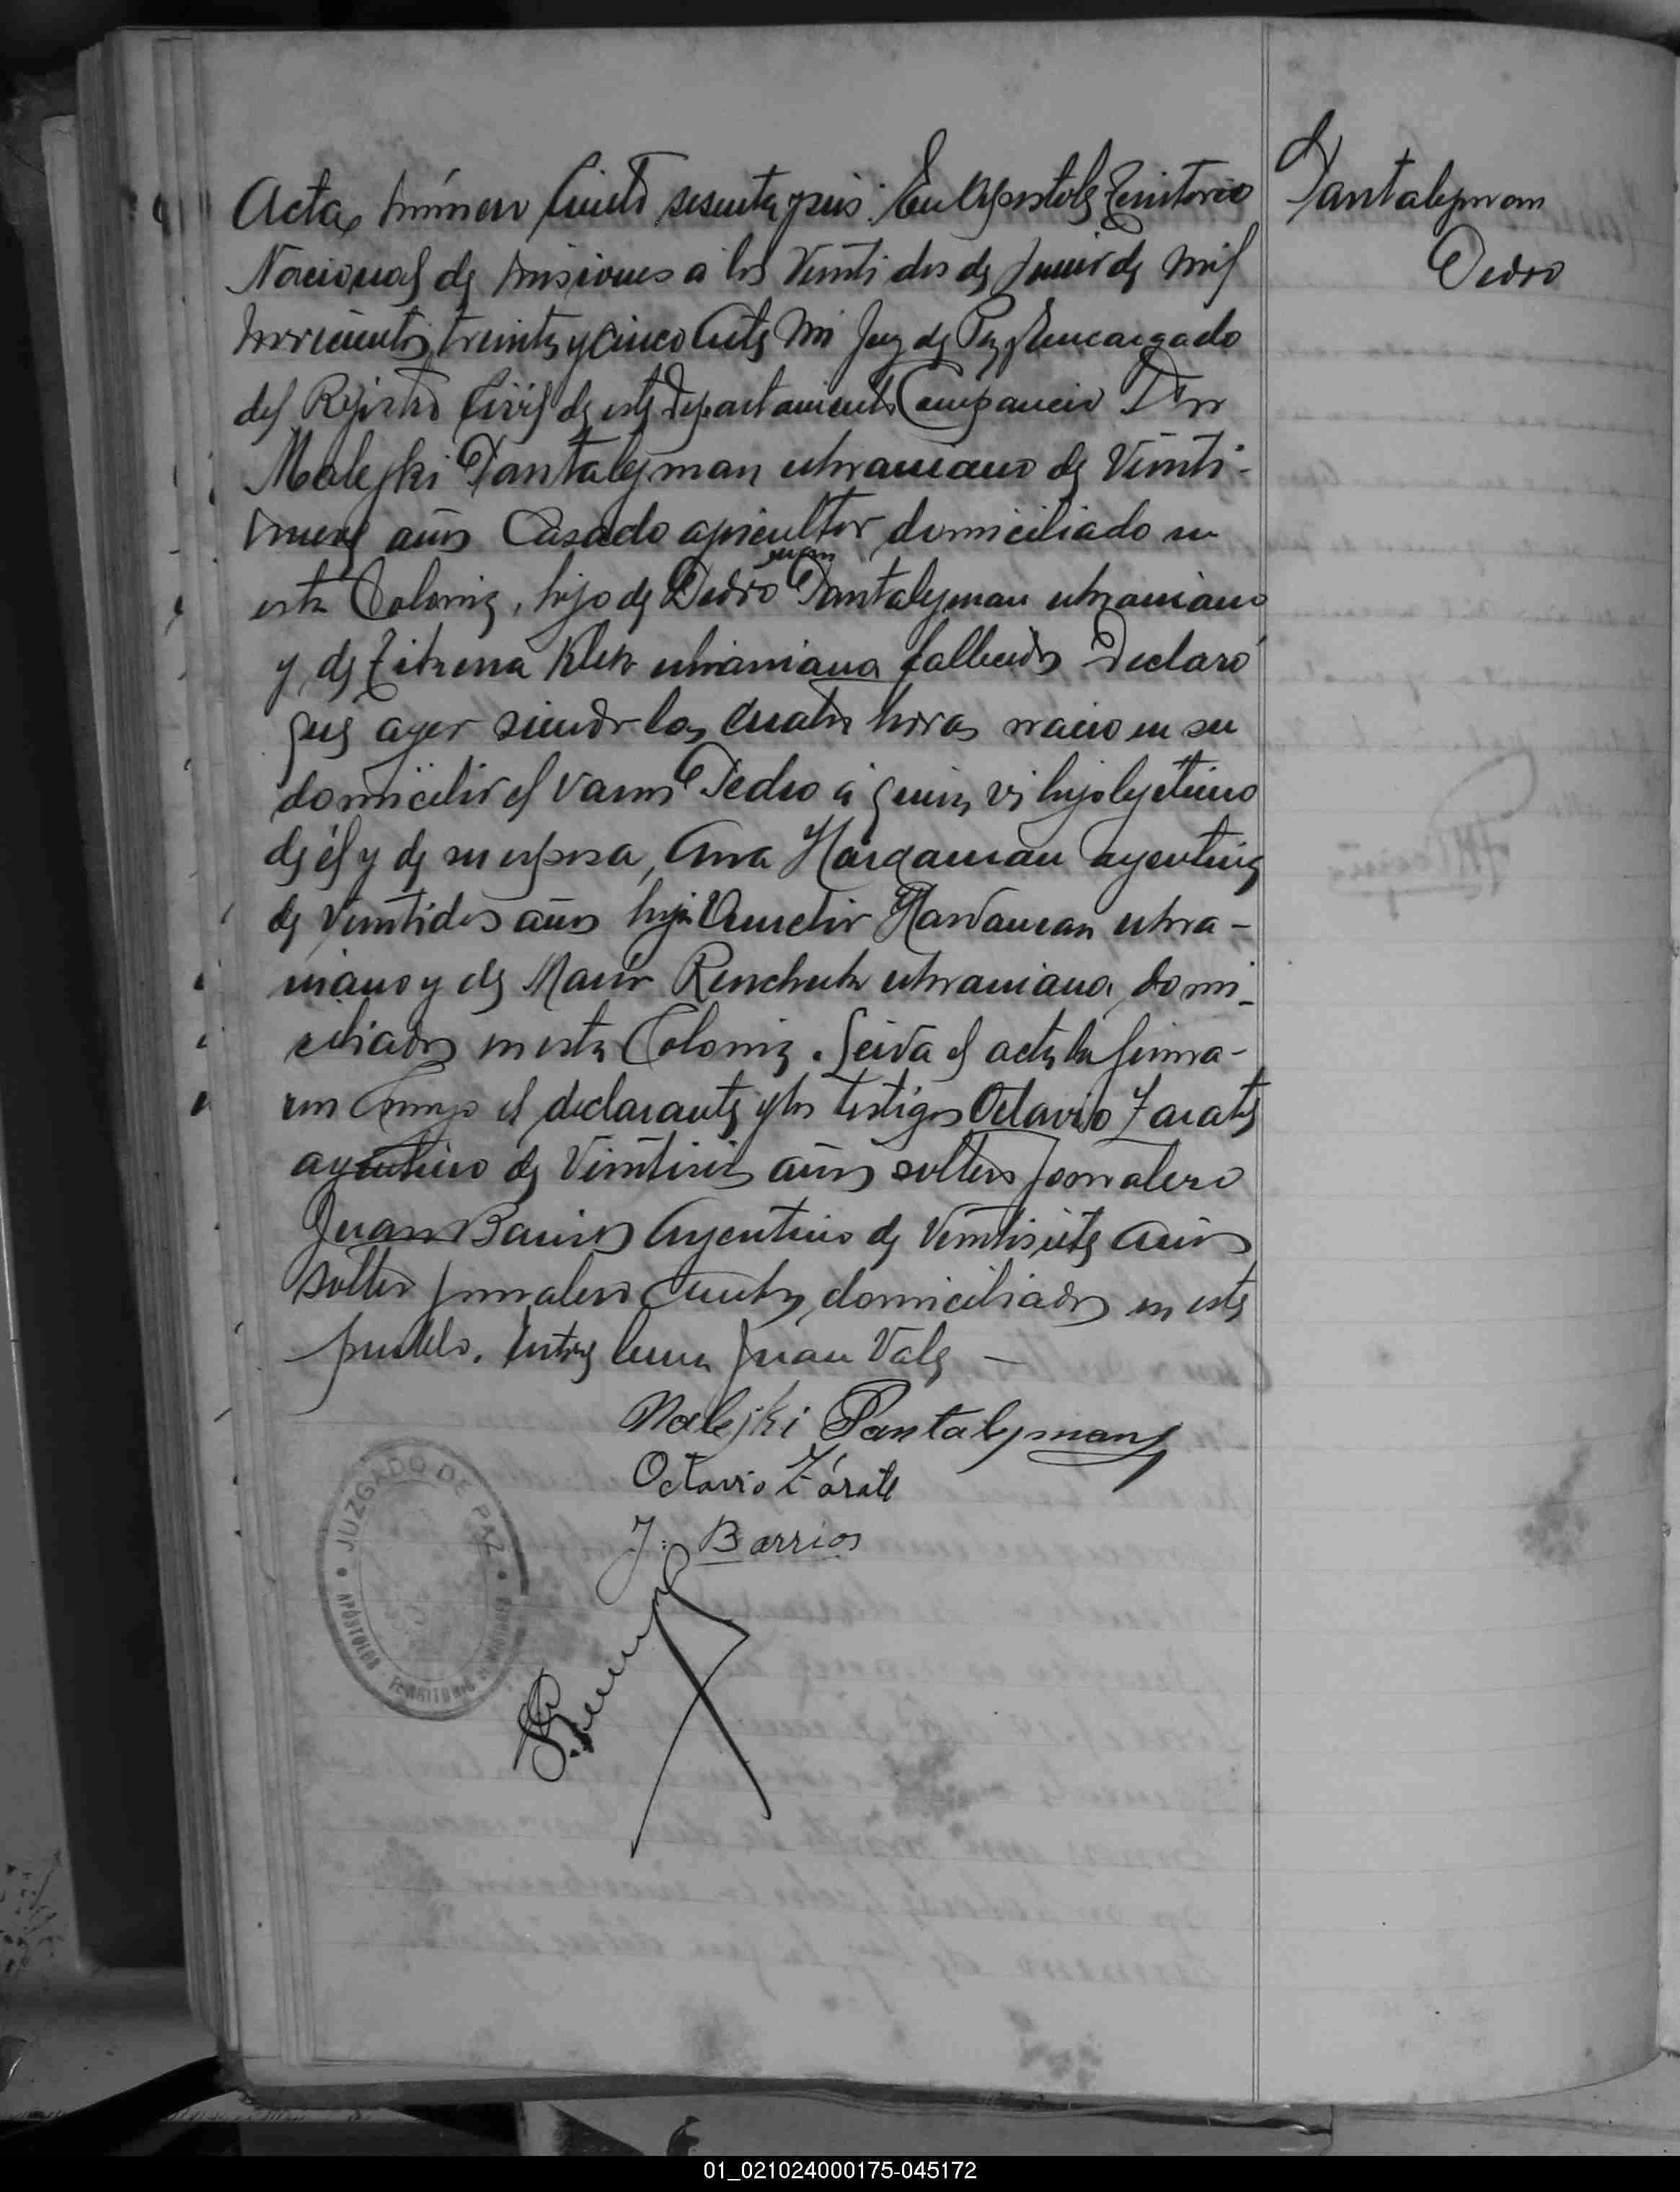 Acta número Ciento sesenta y seis. En Apostoles Territorio
Nacional de Misiones a los Veinti dos de Junio de mil
novecientos treinta y cinco Ante mi Juez de Paz y Encargado
del Rejistro Civil de este departamento Compareció Don
Malejki Pantalejman ukraniano de Veinti-
nueve años Casado agricultor domiciliado en
Juan
esta Colonia, hijo de Pedro Pantalejman ukraniano
y de Klek ukraniana fallecidos Declaró
que ayer siendo las cuatro horas nacio en su
domicilio el varon Pedro a quien vi hijo lejitimo
de él y de su esposa, Ana Hardaman argentina
de Veintidos años hija Hardaman ukra-
niano y de María ukraniana, domi-
ciliados en esta Colonia. Leida el acta la firma-
ron Conmigo el declarante y los testigos Octavio Zarate
argentino de Veintiseis años soltero Jornalero
Juan Barrios Argentino de Veintisiete años
soltero Jornalero domiciliados en este
pueblo. Entre linea Juan Vale —
Malejki Pantalejman
Octavio Zárate
J. Barrios
JUZGADO DE PAZ
APÓSTOLES - TERRITORIO MISIONES
Pantalejman
Pedro
01_021024000175-045172